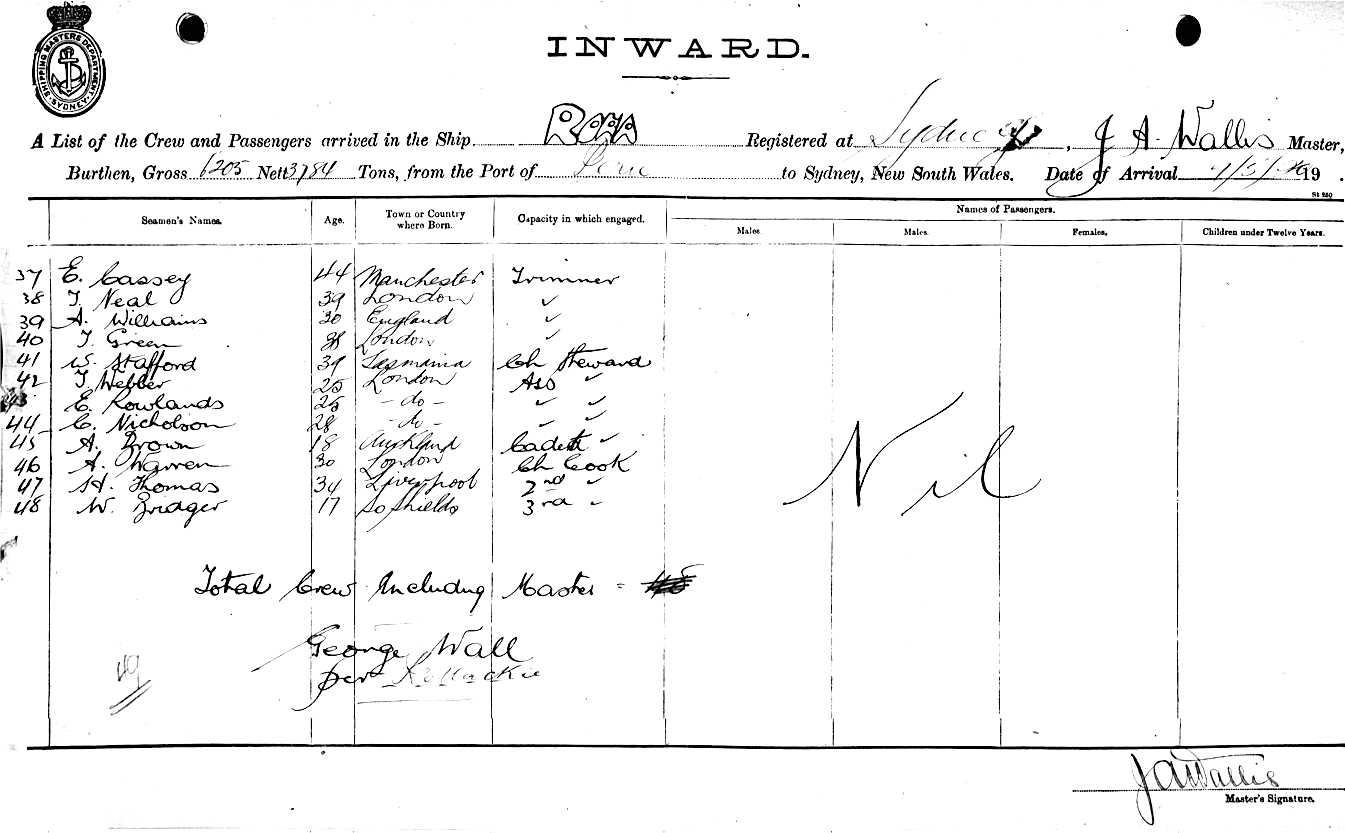 SHIPPING MASTERS DEPARTMENT SYDNEY
INWARD.
A List of the Crew and Passengers arrived in the Ship Registered at Sydney, J A. Wallis Master,
Burthen, Gross 6205 Nett 3784 Tons, from the Port of to Sydney, New South Wales. Date of Arrival 19 .
St 280
Seamen's Names. Age. Town or Country where Born. Capacity in which engaged. Names of Passengers.
Males. Males. Females. Children under Twelve Years.
37 E. Cassey 44 Manchester Trimmer
38 T. Neal 39 London ✓
39 A. Williams 30 England ✓
40 T. Green 38 London ✓
41 W. Stafford 39 Tasmania Ch Steward
42 T. Webber 25 London Ass ✓
43 E. Rowlands 25 - do - ✓ ✓
44 C. Nicholson 28 - do - ✓ ✓
45 A. Brown 18 Auckland Cadett ✓
46 A. Warren 30 London Ch Cook
47 H. Thomas 34 Liverpool 2nd ✓
48 W. Bridger 17 So Shields 3rd ✓
Nil
Total Crew Including Master =
George Wall
per
49
J A Wallis
Master's Signature.